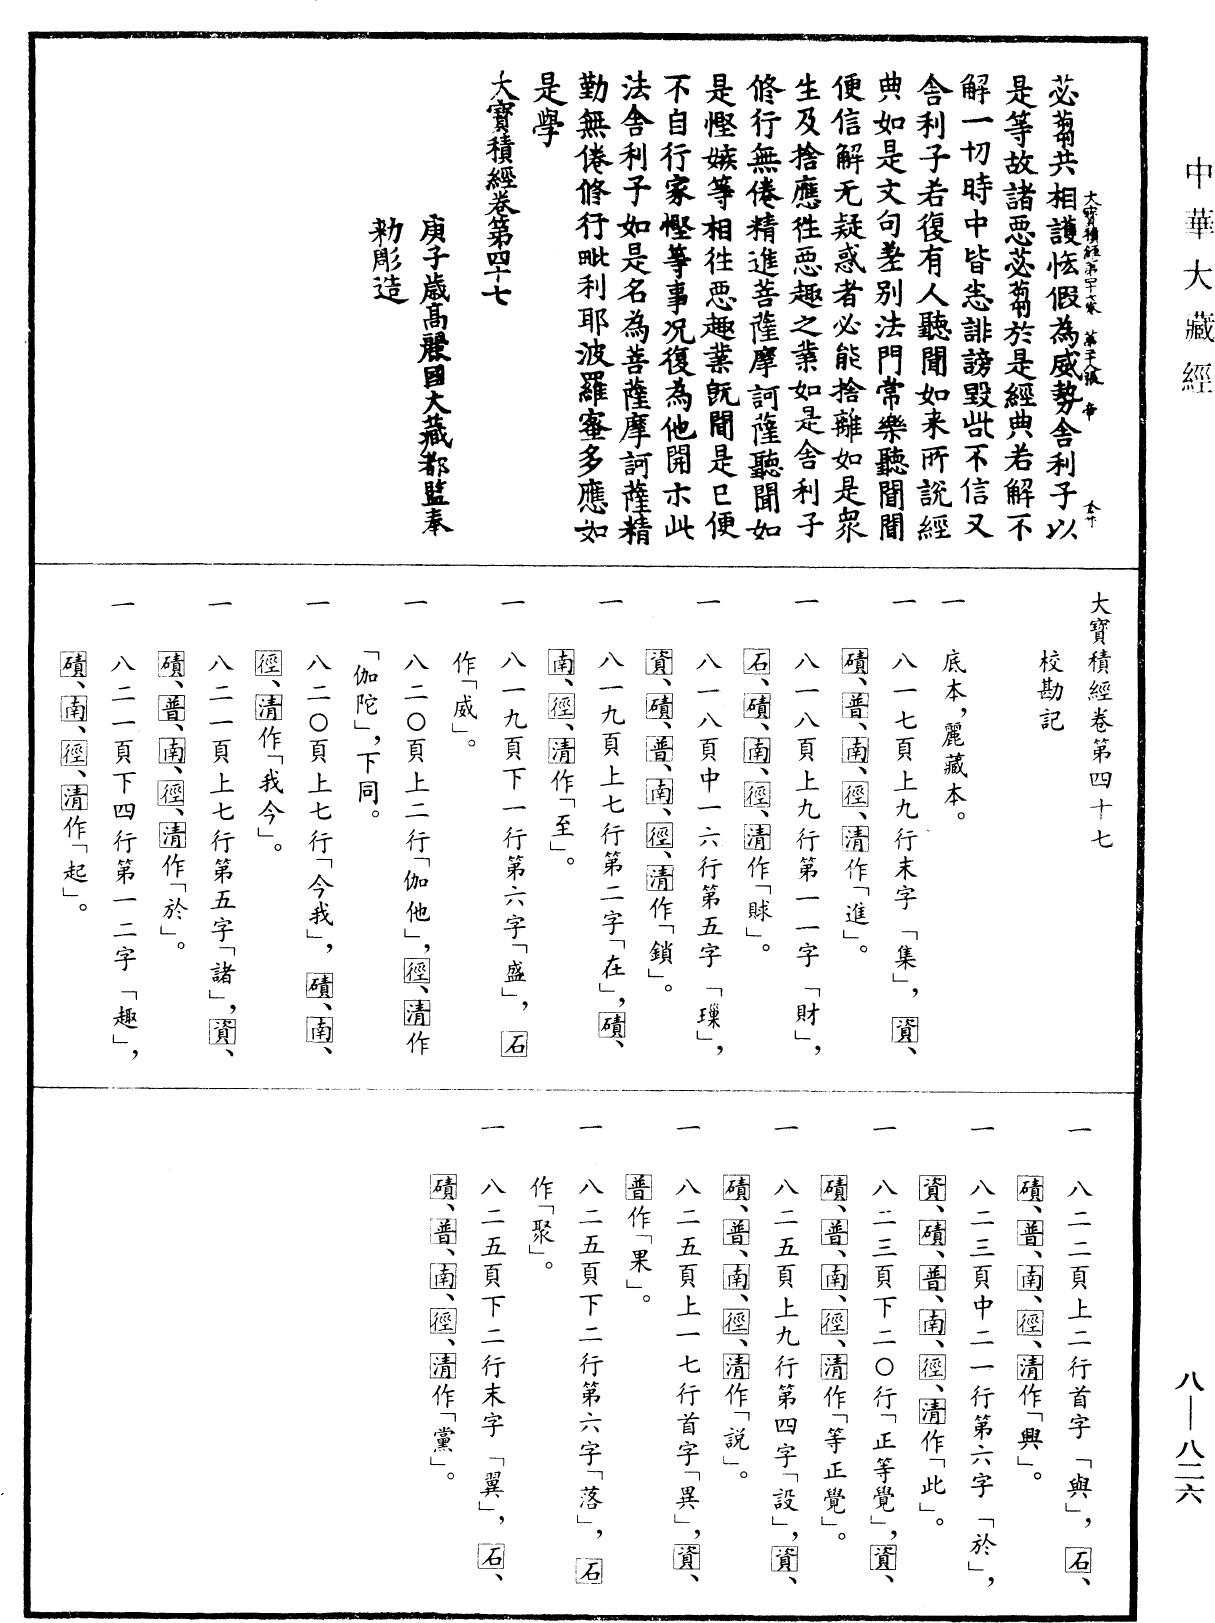 中華大藏經
大寶積經第四十七卷　第十八張　帝
苾蒭共相護恡假為威勢舍利子以
是等故諸惡苾蒭於是經典若解不
解一切時中皆悉誹謗毀呰不信又
舍利子若復有人聽聞如来所說經
典如是文句差别法門常樂聽聞聞
便信解无疑惑者必能捨離如是衆
生及捨應往惡趣之業如是舍利子
修行無倦精進菩薩摩訶薩聽聞如
是慳嫉等相往惡趣業旣聞是已便
不自行家慳等事况復為他開示此
法舍利子如是名為菩薩摩訶薩精
勤無倦修行毗利耶波羅蜜多應如
是學
大寶積經卷第四十七
庚子歲高麗國大藏都監奉
勑彫造
大寶積經卷第四十七
校勘記
一　底本，麗藏本。
一　八一七頁上九行末字「集」，資、
磧、普、南、徑、清作「進」。
一　八一八頁上九行第一一字「財」，
石、磧、南、徑、清作「賕」。
一　八一八頁中一六行第五字「璅」，
資、磧、普、南、徑、清作「鎖」。
一　八一九頁上七行第二字「在」，磧、
南、徑、清作「至」。
一　八一九頁下一行第六字「盛」，石
作「威」。
一　八二〇頁上二行「伽他」，徑、清作
「伽陀」，下同。
一　八二〇頁上七行「今我」，磧、南、
徑、清作「我今」。
一　八二一頁上七行第五字「諸」，資、
磧、普、南、徑、清作「於」。
一　八二一頁下四行第一二字「趣」，
磧、南、徑、清作「起」。
一　八二二頁上二行首字「與」，石、
磧、普、南、徑、清作「興」。
一　八二三頁中二一行第六字「於」，
資、磧、普、南、徑、清作「此」。
一　八二三頁下二〇行「正等覺」，資、
磧、普、南、徑、清作「等正覺」。
一　八二五頁上九行第四字「設」，資、
磧、普、南、徑、清作「説」。
一　八二五頁上一七行首字「異」，資、
普作「果」。
一　八二五頁下二行第六字「落」，石
作「聚」。
一　八二五頁下二行末字「翼」，石、
磧、普、南、徑、清作「黨」。
八—八二六